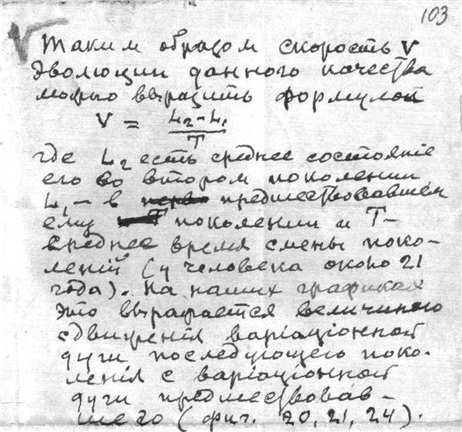 103
V
Таким образом скорость V
эволюции данного качества
можно выразить формулой
V = L₂-L₁
T
где L₂ есть среднее состояніе
его во втором поколении,
L₁ – в предшествовавшем
ему поколении и T –
среднее время смены поко-
леній (у человека около 21
года). На наших графиках
это выражается величиною
сдвиженія варіаціонной
дуги последующего поко-
ленія с варіаціонной
дуги предшествовав-
шего (фиг. 20, 21, 24).